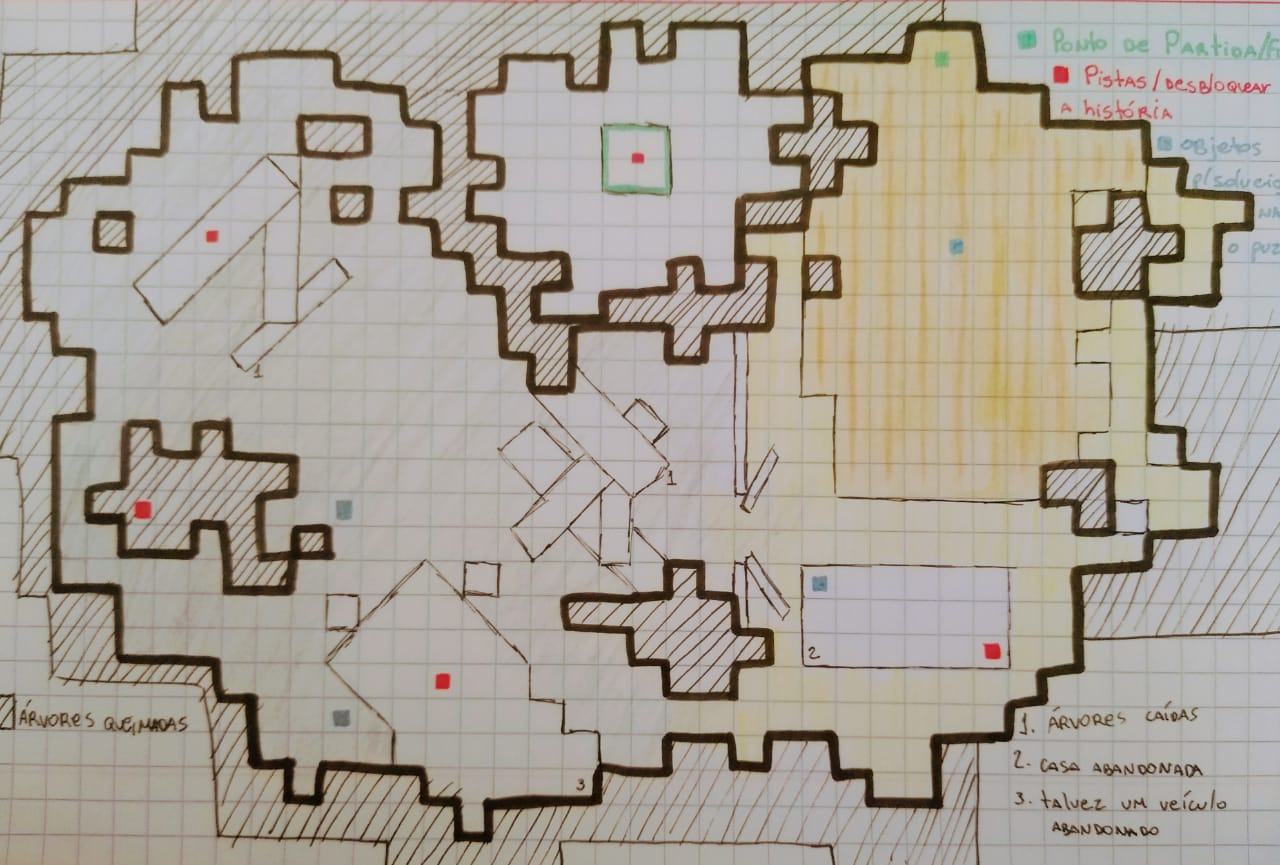 Ponto de Partida/F
Pistas/desbloquear
a história
objetos
p/solucio
NA
o puz
1
1
2
3
Árvores queimadas
1. Árvores caídas
2. casa abandonada
3. talvez um veículo
abandonado